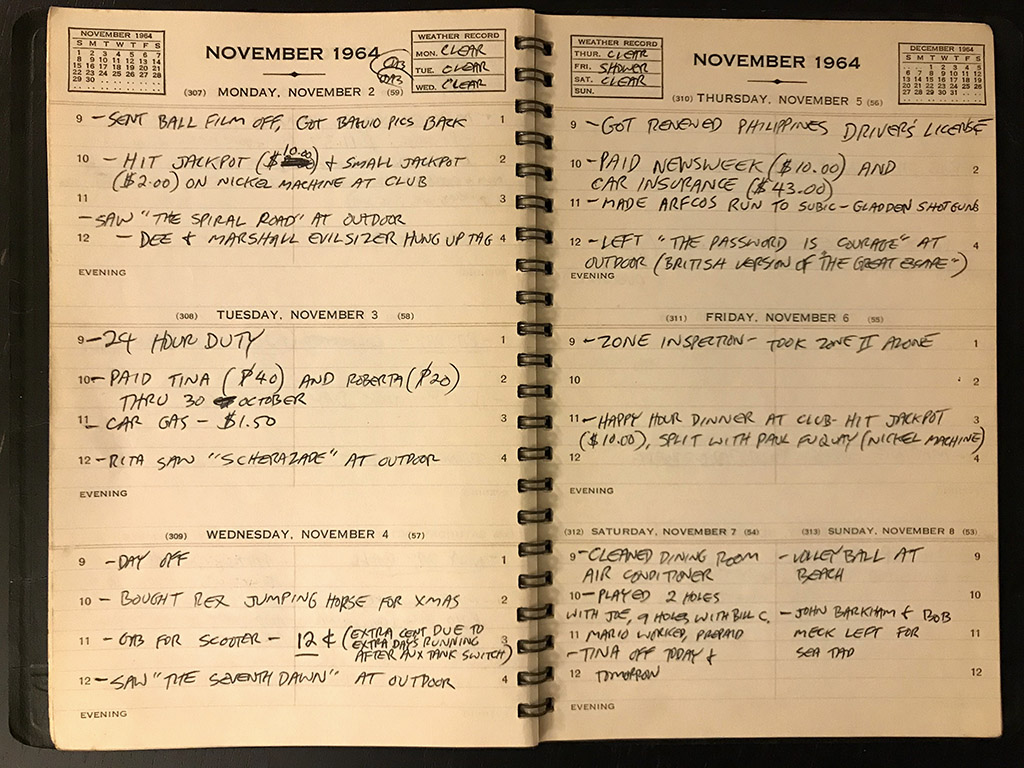 NOVEMBER 1964
S M T W T F S
1 2 3 4 5 6 7
8 9 10 11 12 13 14
15 16 17 18 19 20 21
22 23 24 25 26 27 28
29 30
NOVEMBER 1964
WEATHER RECORD
MON. CLEAR
TUE. CLEAR
WED. CLEAR
(307) MONDAY, NOVEMBER 2 (59)
9 - SENT BALL FILM OFF, GOT BAGUIO PICS BACK 1
10 - HIT JACKPOT ($10.00) & SMALL JACKPOT 2
($2.00) ON NICKEL MACHINE AT CLUB
11 3
- SAW "THE SPIRAL ROAD" AT OUTDOOR
12 - DEE & MARSHALL EVILSIZER HUNG UP TAG 4
EVENING
(308) TUESDAY, NOVEMBER 3 (58)
9 - 24 HOUR DUTY 1
10 - PAID TINA (₱40) AND ROBERTA (₱20) 2
THRU 30 OCTOBER
11 - CAR GAS - $1.50 3
12 - RITA SAW "SCHERAZADE" AT OUTDOOR 4
EVENING
(309) WEDNESDAY, NOVEMBER 4 (57)
9 - DAY OFF 1
10 - BOUGHT REX JUMPING HORSE FOR XMAS 2
11 - GAS FOR SCOOTER - 12¢ (EXTRA CENT DUE TO 3
EXTRA DAYS RUNNING
AFTER AUX TANK SWITCH)
12 - SAW "THE SEVENTH DAWN" AT OUTDOOR 4
EVENING
WEATHER RECORD
THUR. CLEAR
FRI. SHOWER
SAT. CLEAR
SUN.
NOVEMBER 1964
DECEMBER 1964
S M T W T F S
1 2 3 4 5
6 7 8 9 10 11 12
13 14 15 16 17 18 19
20 21 22 23 24 25 26
27 28 29 30 31
(310) THURSDAY, NOVEMBER 5 (56)
9 - GOT RENEWED PHILIPPINES DRIVER'S LICENSE
10 - PAID NEWSWEEK ($10.00) AND 2
CAR INSURANCE ($43.00)
11 - MADE ARFCOS RUN TO SUBIC - GLADDEN SHOTGUNS
12 - LEFT "THE PASSWORD IS COURAGE" AT 4
OUTDOOR (BRITISH VERSION OF "THE GREAT ESCAPE")
EVENING
(311) FRIDAY, NOVEMBER 6 (55)
9 - ZONE INSPECTION - TOOK ZONE II ALONE 1
10 2
11 - HAPPY HOUR DINNER AT CLUB - HIT JACKPOT 3
($10.00), SPLIT WITH PAUL FUQUAY (NICKEL MACHINE)
12 4
EVENING
(312) SATURDAY, NOVEMBER 7 (54)
9 - CLEANED DINING ROOM
AIR CONDITIONER
10 - PLAYED 2 HOLES
WITH JOE, 9 HOLES WITH BILL C.
11 MARIO WORKED, PREPAID
- TINA OFF TODAY &
12 TOMORROW
EVENING
(313) SUNDAY, NOVEMBER 8 (53)
- VOLLEYBALL AT 9
BEACH
10
- JOHN BARKHAM & BOB
MECK LEFT FOR 11
SEA TAD
12